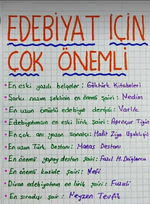 EDEBİYAT İÇİN
ÇOK ÖNEMLİ
• En eski yazılı belgeler: Göktürk Kitabeleri
• Şarkı nazım şeklinin en önemli şairi: Nedim
• En uzun ömürlü edebiyat dergisi: Varlık
• Edebiyatımızın en eski lirik şairi: Aprınçur Tigin
• En çok anı yazan sanatçı: Halit Ziya Uşaklıgil
• En uzun Türk Destanı: Manas Destanı
• En önemli yapay destan şairi: Fazıl H. Dağlarca
• En önemli kaside şairi: Nefi
• Divan edebiyatının en lirik şairi: Fuzuli
• En sıradışı şair: Neyzen Tevfik